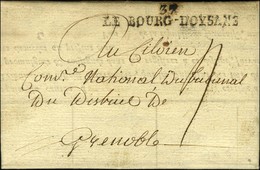 37
LE BOURG-DOYSANS
Au Citoien
Com.re National du tribunal
Du District De
Grenoble